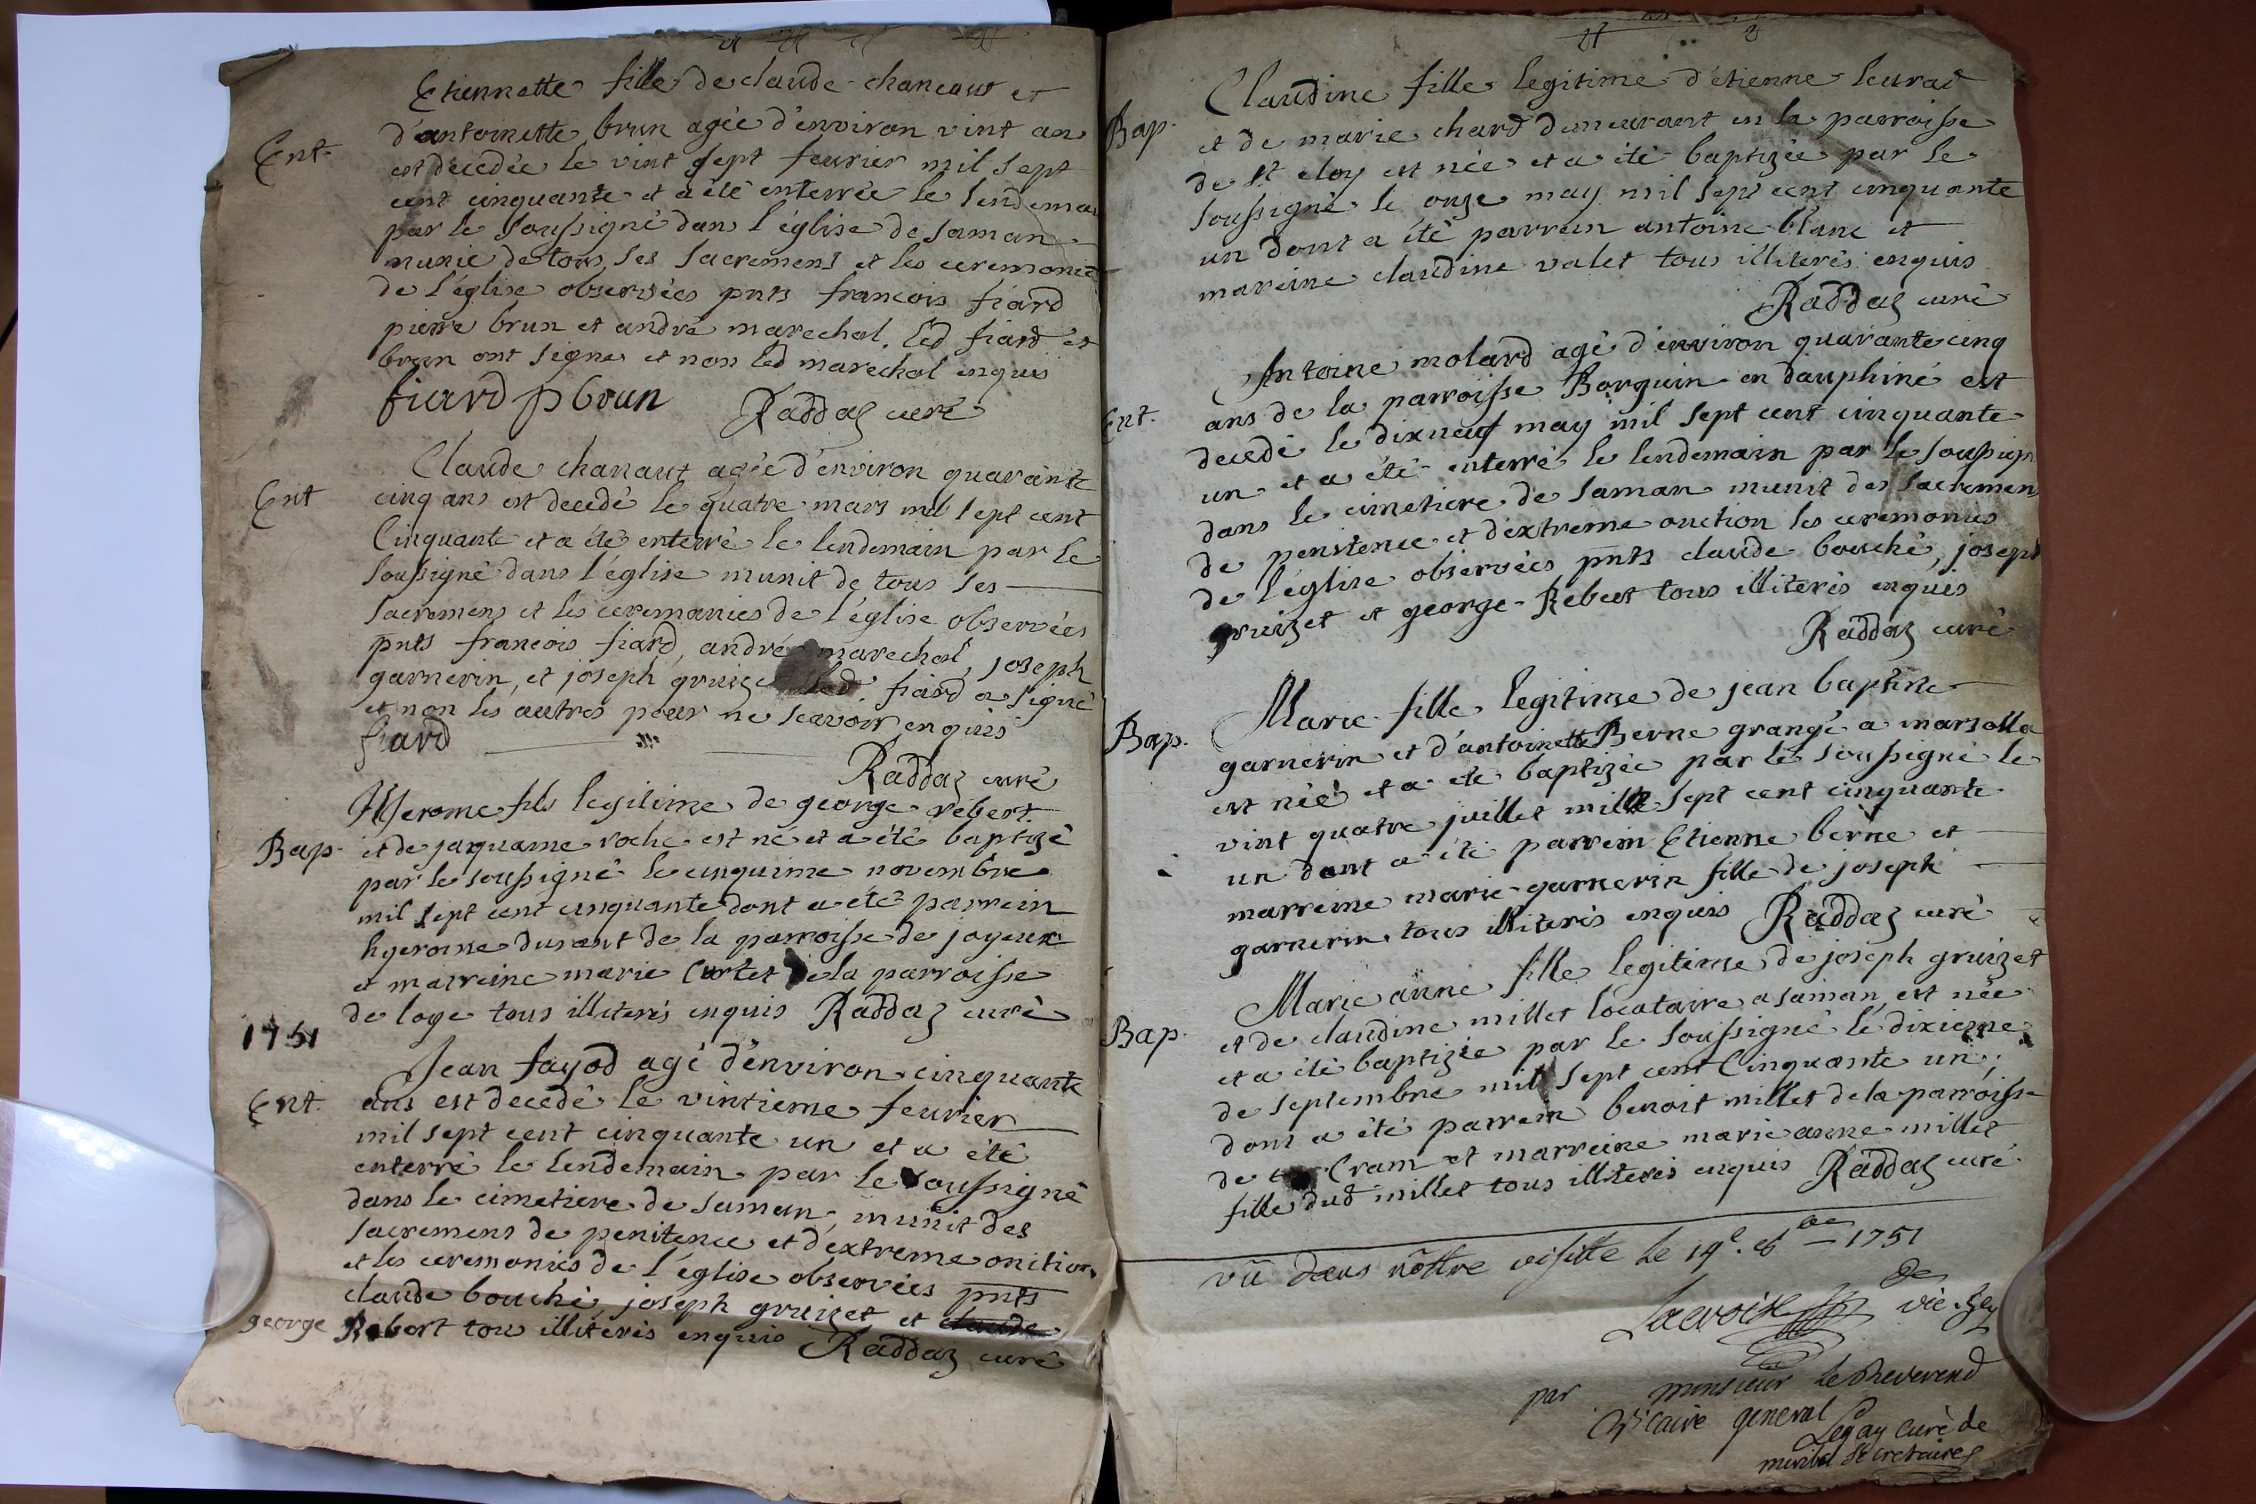 Etiennette fille de claude chanaut et
Ent. d'antoinette brun agée d'environ vint ans
est decedée le vint sept feurier mil sept
cent cinquante et a été enterrée le lendemain
par le soussigné dans l'église de saman
munie de tous ses sacremens et les ceremonies
de l'église observées pnts francois fiard
pierre brun et andré marechal. led fiard et
brun ont signes et non led marechal enquis
fiard p brun Raddaz curé
Claude chanaut agée d'environ quarante
Ent cinq ans est decedé le quatre mars mil sept cent
Cinquante et a été enterré le lendemain par le
soussigné dans l'église munit de tous ses
sacremens et les ceremonies de l'église observées
pnts francois fiard, andré marechal, joseph
garnerin, et joseph gruize led fiard a signé
et non les autres pour ne scavoir enquis
fiard
Raddaz curé
Hyerome fils legitime de george rebert
Bap. et de jaquame roche est né et a été baptizé
par le soussigné le cinquime novembre
mil sept cent cinquante dont a été parrein
hyerome durant de la parroisse de joyeux
et marreine marie Curtet de la parroisse
de loye tous illiterés enquis Raddaz curé
1751
Jean fayod agé d'environ cinquante
Ent. ans est decedé le vintieme feurier
mil sept cent cinquante un et a été
enterré le lendemain par le soussigné
dans le cimetiere de saman, munit des
sacremens de penitence et d'extreme onition
et les ceremonies de l'église observées pnts
claude bouché, joseph gruizet et claude
george Rebert tous illiterés enquis Raddaz curé
Claudine fille legitime d'etienne leurat
Bap. et de marie chard demeurant en la parroisse
de st eloy est née et a été baptizée par le
soussigné le onze may mil sept cent cinquante
un dont a été parrein antoine blanc et
mareine claudine valet tous illiterés enquis
Raddaz curé
Antoine molard agé d'environ quarante cinq
Ent. ans de la parroisse Borguin en dauphiné est
decedé le dixneuf may mil sept cent cinquante
un et a été enterré le lendemain par le soussign
dans le cimetiere de saman munit des sacremen
de penitence et d'extreme onction les ceremonies
de l'église observées pnts claude bouché, joseph
gruizet et george Rebert tous illiterés enquis
Raddaz curé
Marie fille legitime de jean baptiste
Bap. garnerin et d'antoinette Berne grangé a marsolla
est née et a été baptizée par le soussigné le
vint quatre juillet mille sept cent cinquante
un dont a été parrein Etienne berne et
marreine marie garnerin fille de joseph
garnerin tous illiterés enquis Raddaz curé
Marie anne fille legitime de joseph gruizet
Bap. et de claudine millet locataire a saman est née
et a été baptizée par le soussigné le dixieme
de septembre mil sept cent Cinquante un,
dont a été parrein benoit millet de la parroisse
de Cram et marreine marie anne millet
fille dud millet tous illiterés enquis Raddaz curé
vû dans nôttre visitte le 19e. 8bre 1751
Lacroix vic. gen
par monsieur le Reverend
Vicaire general
Legay Curé de
miribel secretaire